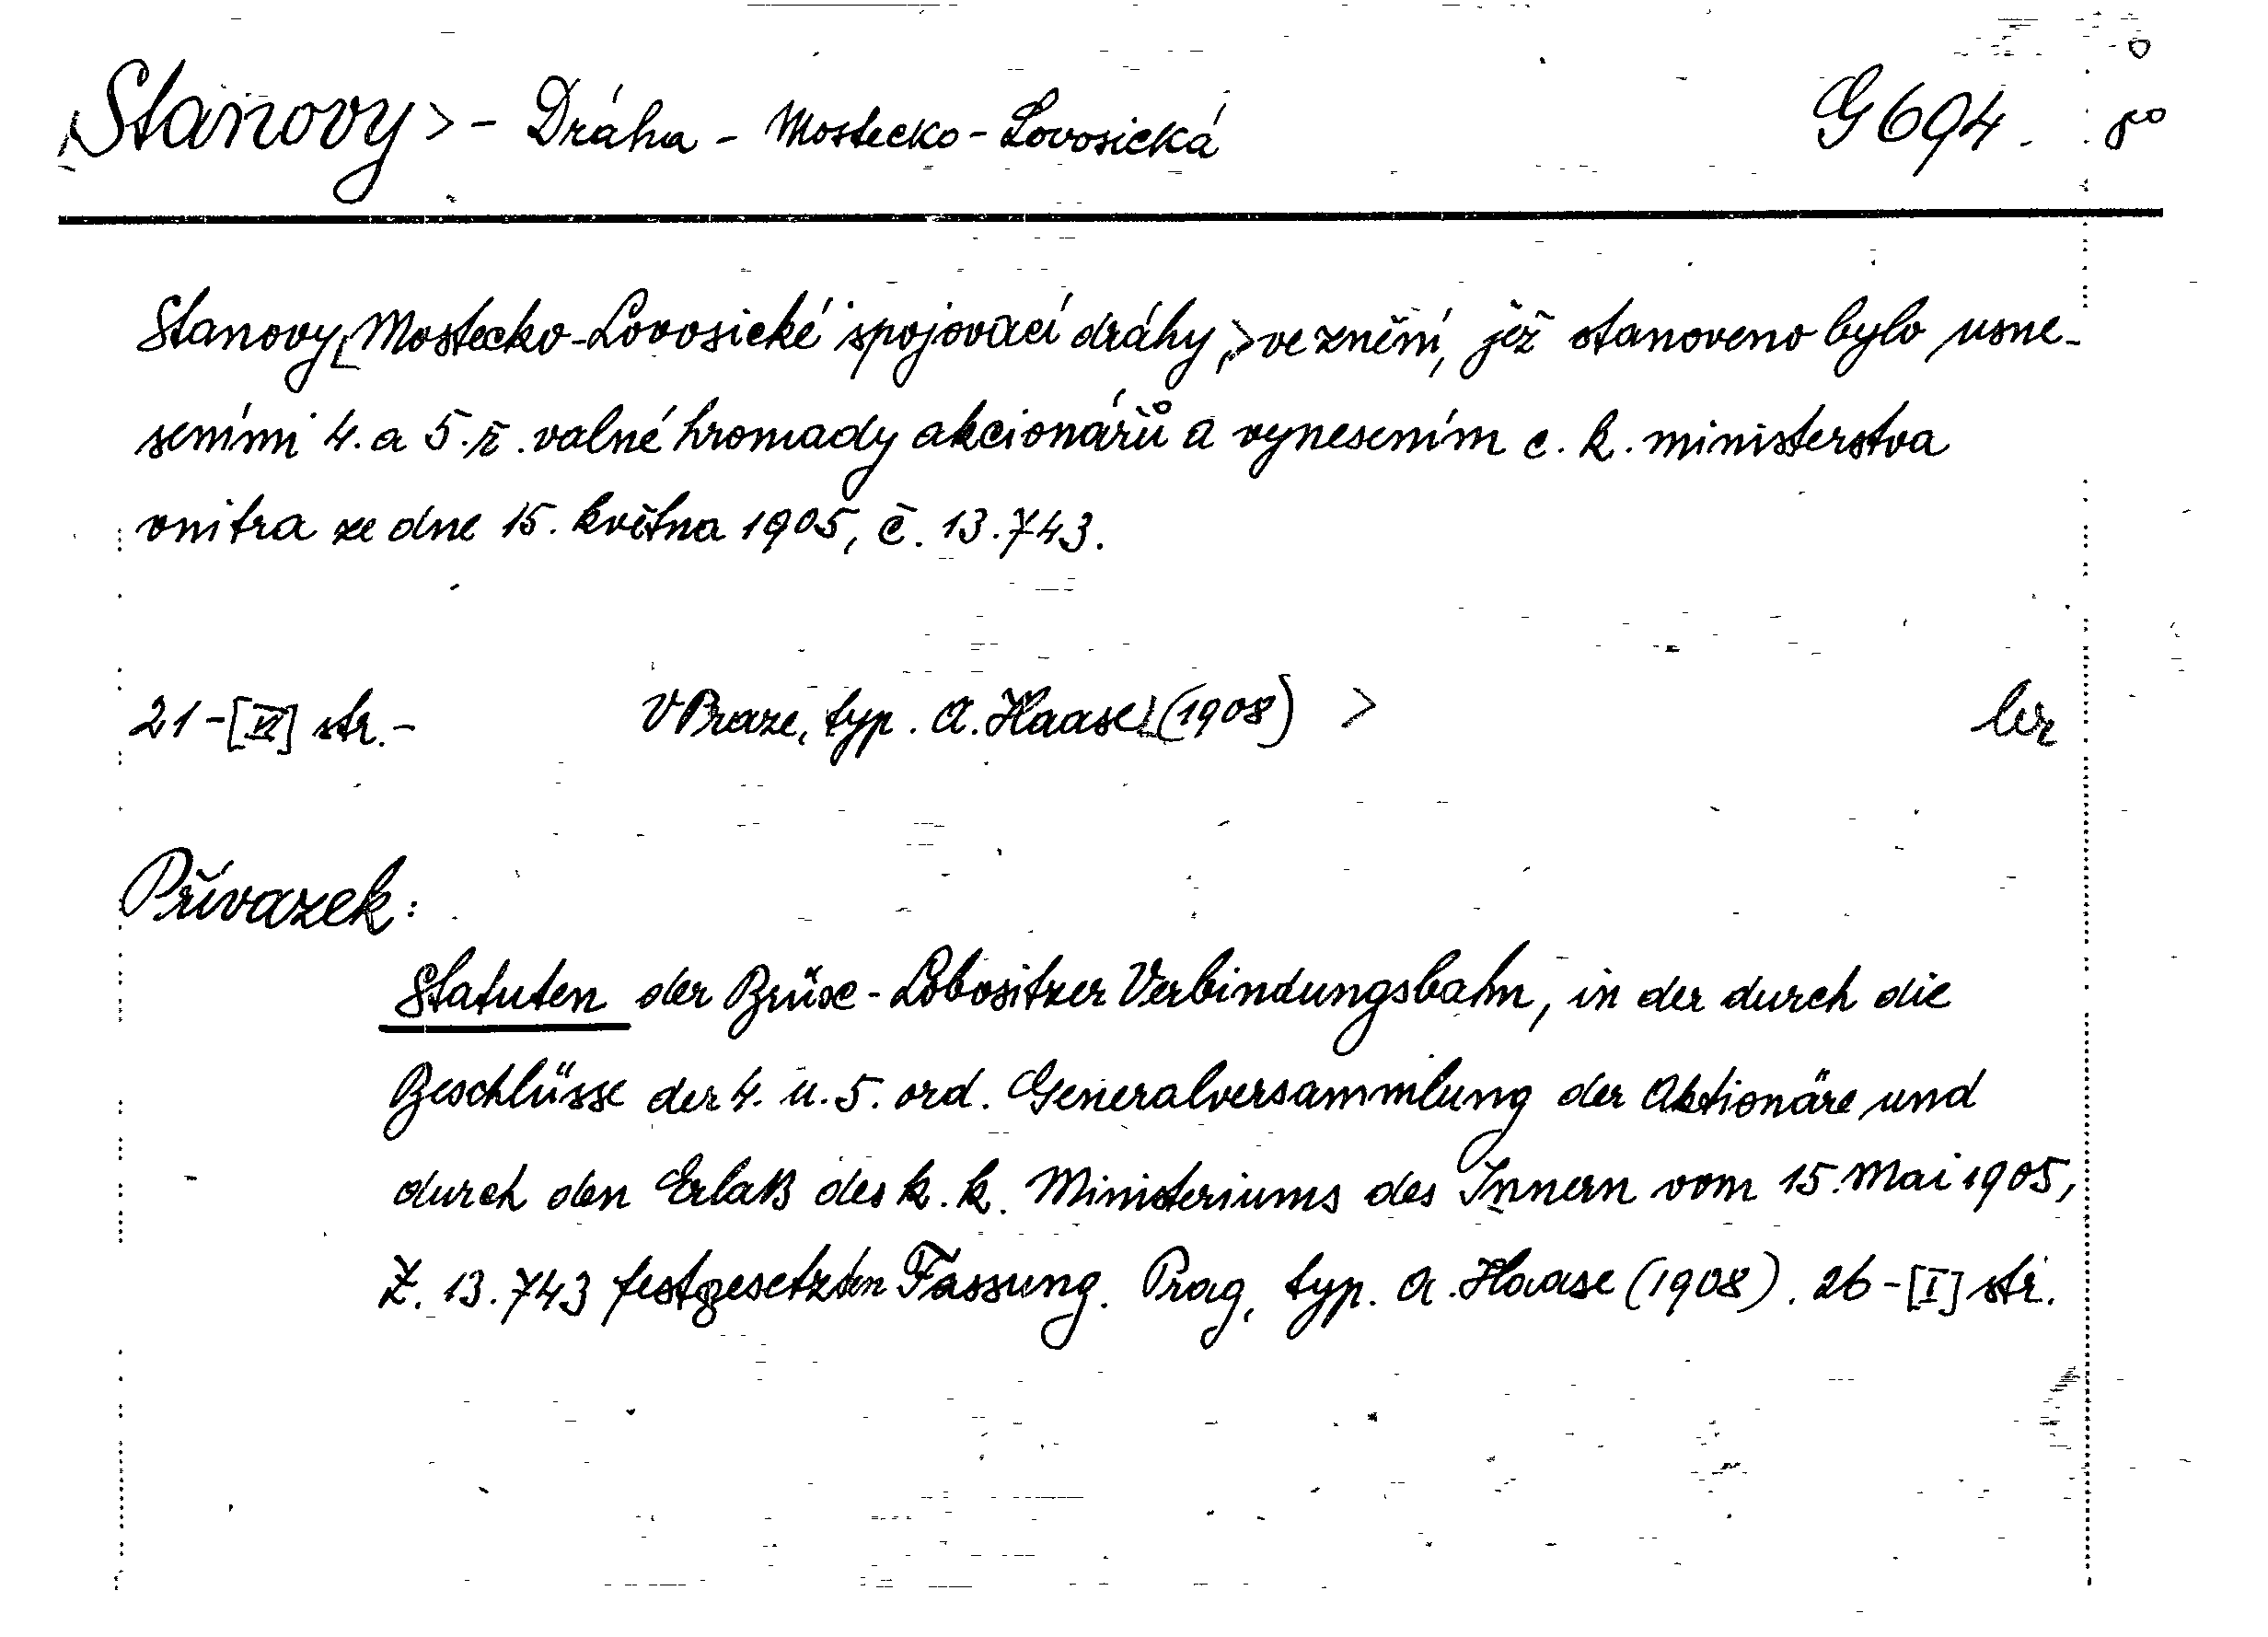 Stanovy > - Dráha - Mostecko - Lovosická G 694. 8°
Stanovy [Mostecko-Lovosické spojovací dráhy,> ve znění, jež stanoveno bylo usne-
seními 4. a 5. ř. valné hromady akcionářů a vynesením c. k. ministerstva
vnitra ze dne 15. května 1905, č. 13.743.
21-[VI] str. - V Praze, typ. A. Haase (1908) >
Přívazek:
Statuten der Brüx-Lobositzer Verbindungsbahn, in der durch die
Beschlüsse der 4. u. 5. ord. Generalversammlung der Aktionäre und
durch den Erlaß des k. k. Ministeriums des Innern vom 15. Mai 1905,
Z. 13.743 festgesetzten Fassung. Prag, typ. A. Haase (1908). 26-[I] str.